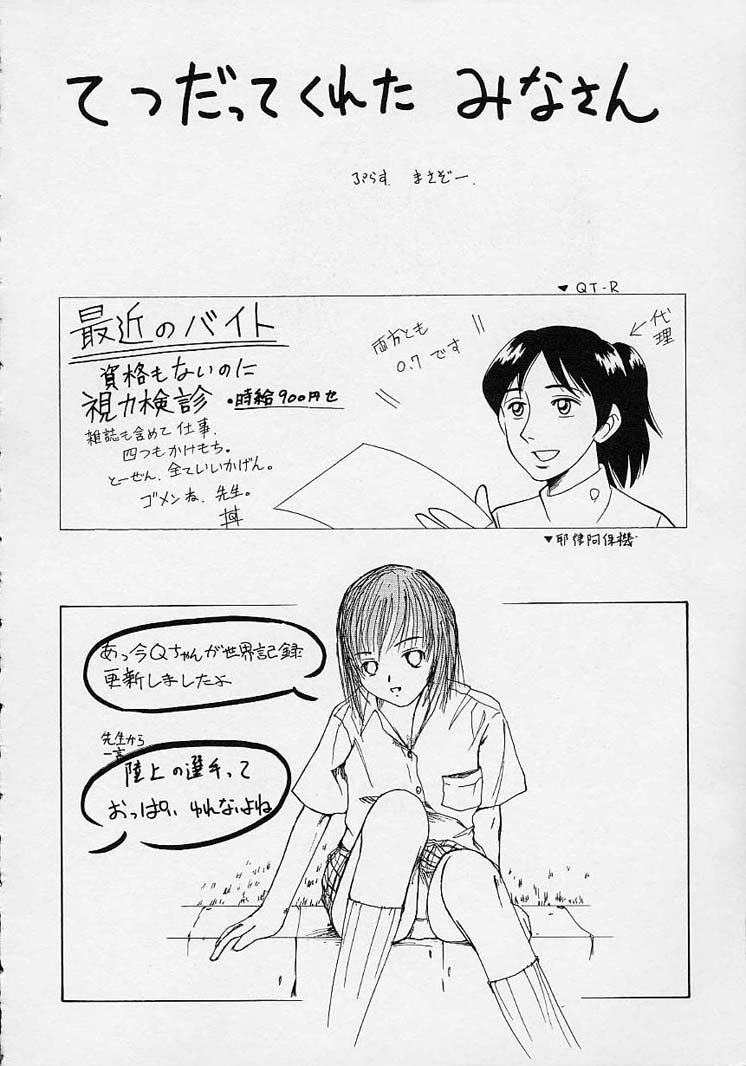 てつだってくれた みなさん
ぷらす まさぞー.
▼QT-R
最近のバイト
資格もないのに
視力検診 ・時給900円せ
雑誌も含めて仕事、
四つもかけもち。
とーぜん、全ていいかげん。
ゴメンね、先生。
両方とも
0.7です
←代理
▼耶律阿保機
あっ今Qちゃんが世界記録
更新しましたよ
先生から
一言
陸上の選手って
おっぱい ゆれないよね